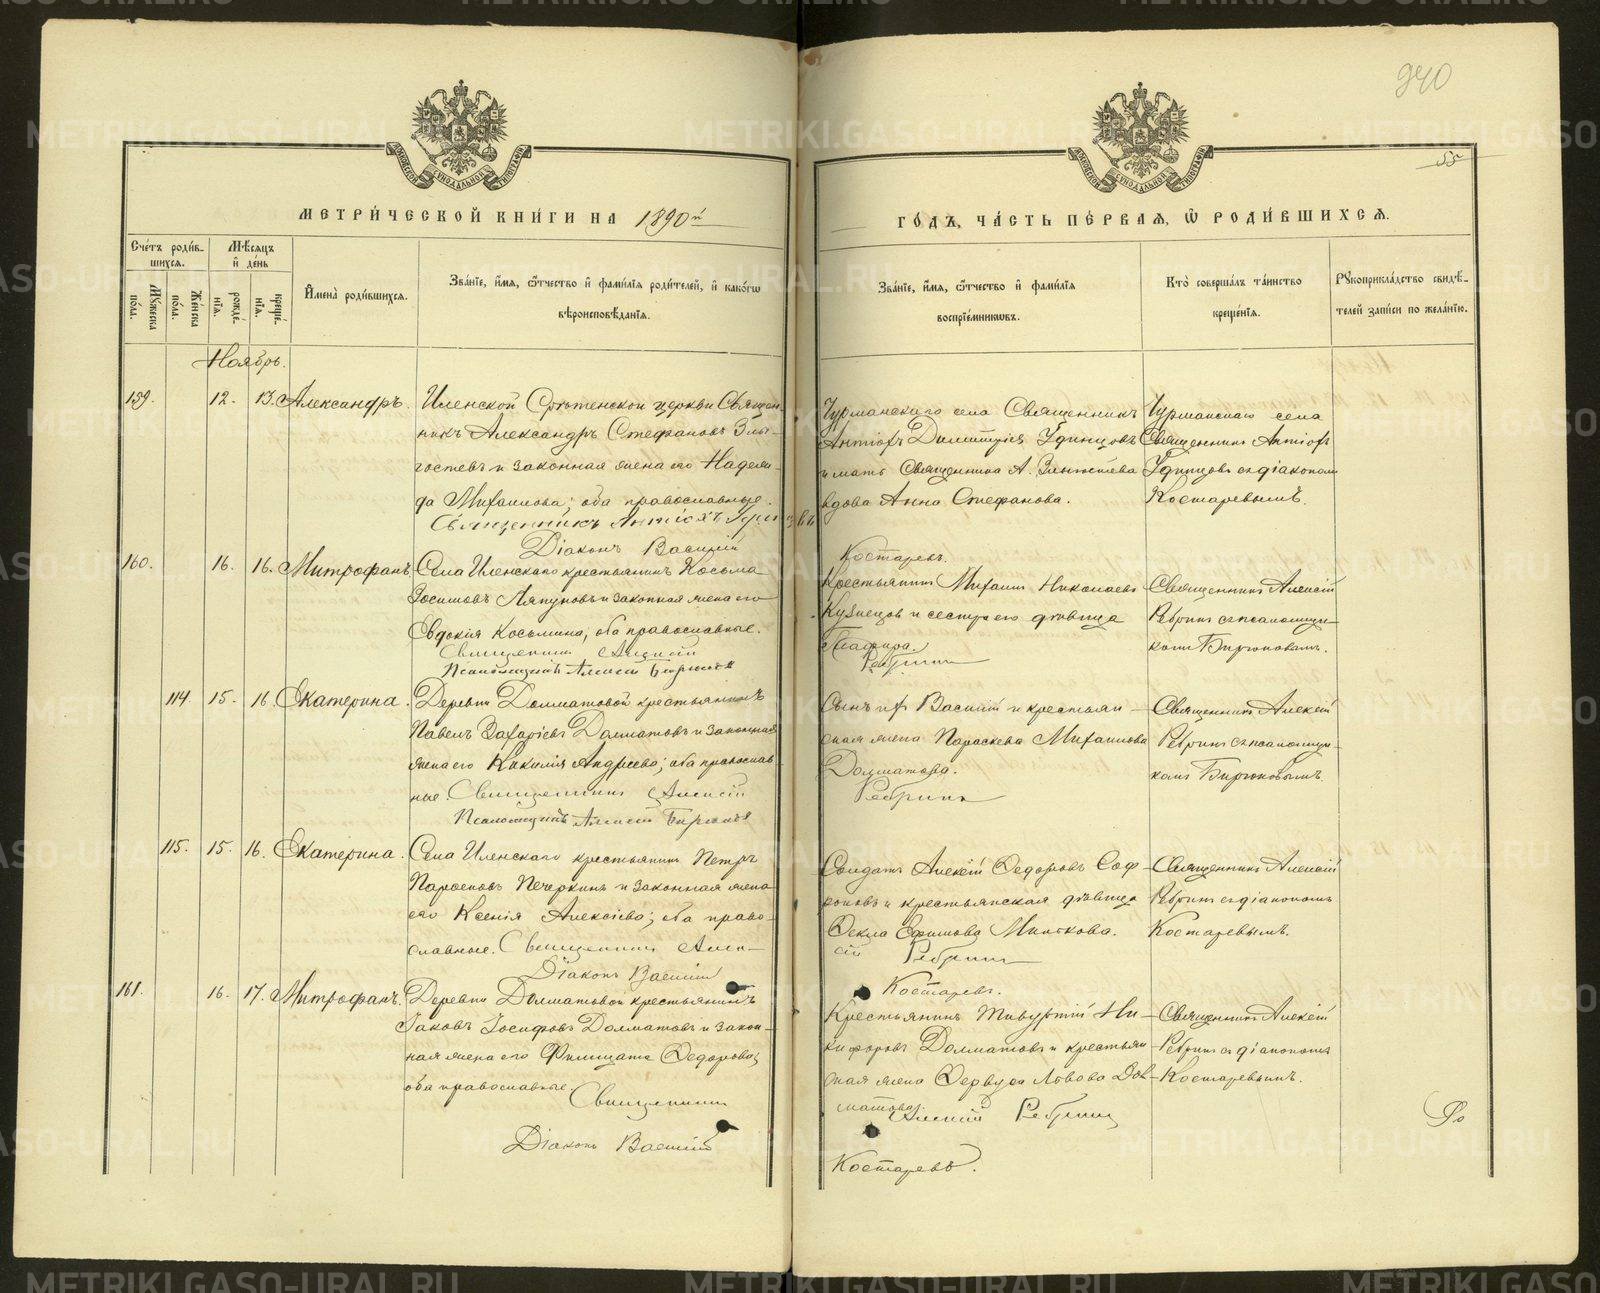 940
55
МЕТРИЧЕСКОЙ КНИГИ НА 1890й
ГОДЪ, ЧАСТЬ ПЕРВАЯ, Ѿ РОДИВШИХСЯ.
Счетъ родив-
шихся.
Мѣсяцъ
и день
Мужеска
пола.
Женска
пола.
рожде-
нія.
креще-
нія.
Имена родившихся.
Званіе, имя, ѿчество и фамилія родителей, и какогѡ
вѣроисповѣданія.
Званіе, имя, ѿчество и фамилія
воспріемниковъ.
Кто совершалъ таинство
крещенія.
Рукоприкладство свидѣ-
телей записи по желанію.
Ноябрь.
159. 12. 13. Александръ.
Иленской Срѣтенской церкви Священ-
никъ Александръ Стефановъ Злы-
гостевъ и законная жена его Надеж-
да Михаилова; оба православные.
Священникъ Антіохъ
Діаконъ Василій
Чурманскаго села Священникъ
Антіохъ Димитріевъ Удинцовъ
и мать Священника А. Злыгостева
вдова Анна Стефанова.
Костаревъ.
Чурманскаго села
Священникъ Антіохъ
Удинцовъ съ діакономъ
Костаревымъ.
160. 16. 16. Митрофанъ.
Села Иленскаго крестьянинъ Косьма
Зосимовъ Ляпуновъ и законная жена его
Евдокія Косьмина; оба православные.
Священникъ Алексій
Псаломщикъ Алексій Бирюковъ
Крестьянинъ Михаилъ Николаевъ
Кузнецов и сестра его дѣвица
Глафира.
Ребринъ
Священникъ Алексій
Ребринъ съ псаломщи-
комъ Бирюковымъ.
114. 15. 16. Екатерина.
Деревни Долматовой крестьянинъ
Павелъ Захаріевъ Долматовъ и законная
жена его Кикилія Андреева; оба православ-
ные. Священникъ Алексій
Псаломщикъ Алексій Бирюковъ
Сынъ ихъ Василій и крестьян-
ская жена Параскева Михаилова
Долматова.
Ребринъ
Священникъ Алексій
Ребринъ съ псаломщи-
комъ Бирюковымъ.
115. 15. 16. Екатерина.
Села Иленскаго крестьянинъ Петръ
Печеркинъ и законная жена
его Ксенія Алексіева; оба право-
славные. Священникъ Алек-
Діаконъ Василій
Солдатъ Алексій Ѳедоровъ Соф-
роновъ и крестьянская дѣвица
Ѳекла Ефимова
сій Ребринъ
Костаревъ.
Священникъ Алексій
Ребринъ съ діакономъ
Костаревымъ.
161. 16. 17. Митрофанъ.
Деревни Долматовой крестьянинъ
Іаковъ Іосифовъ Долматовъ и закон-
ная жена его Филицата Ѳедорова;
оба православные.
Священникъ
Діаконъ Василій
Крестьянинъ Тивуртій Ни-
кифоровъ Долматовъ и крестьян-
ская жена Львова Дол-
матова.
Алексій Ребринъ
Костаревъ.
Священникъ Алексій
Ребринъ съ діакономъ
Костаревымъ.